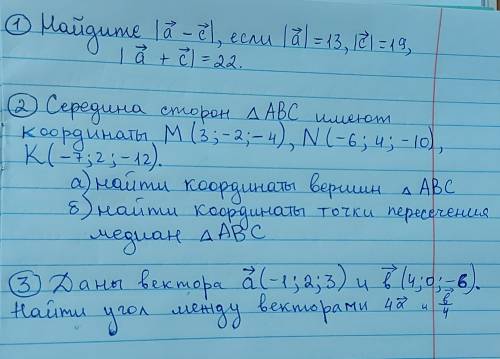 ① Найдите |a⃗ - c⃗|, если |a⃗|=13, |c⃗|=19,
|a⃗ + c⃗|=22.
② Середина сторон △ABC имеют
координаты M(3;-2;-4), N(-6;4;-10),
K(-7;2;-12).
а) найти координаты вершин △ABC
б) найти координаты точки пересечения
медиан △ABC
③ Даны вектора a⃗(-1;2;3) и b⃗(4;0;-6).
Найти угол между векторами 4a⃗ и b⃗/4